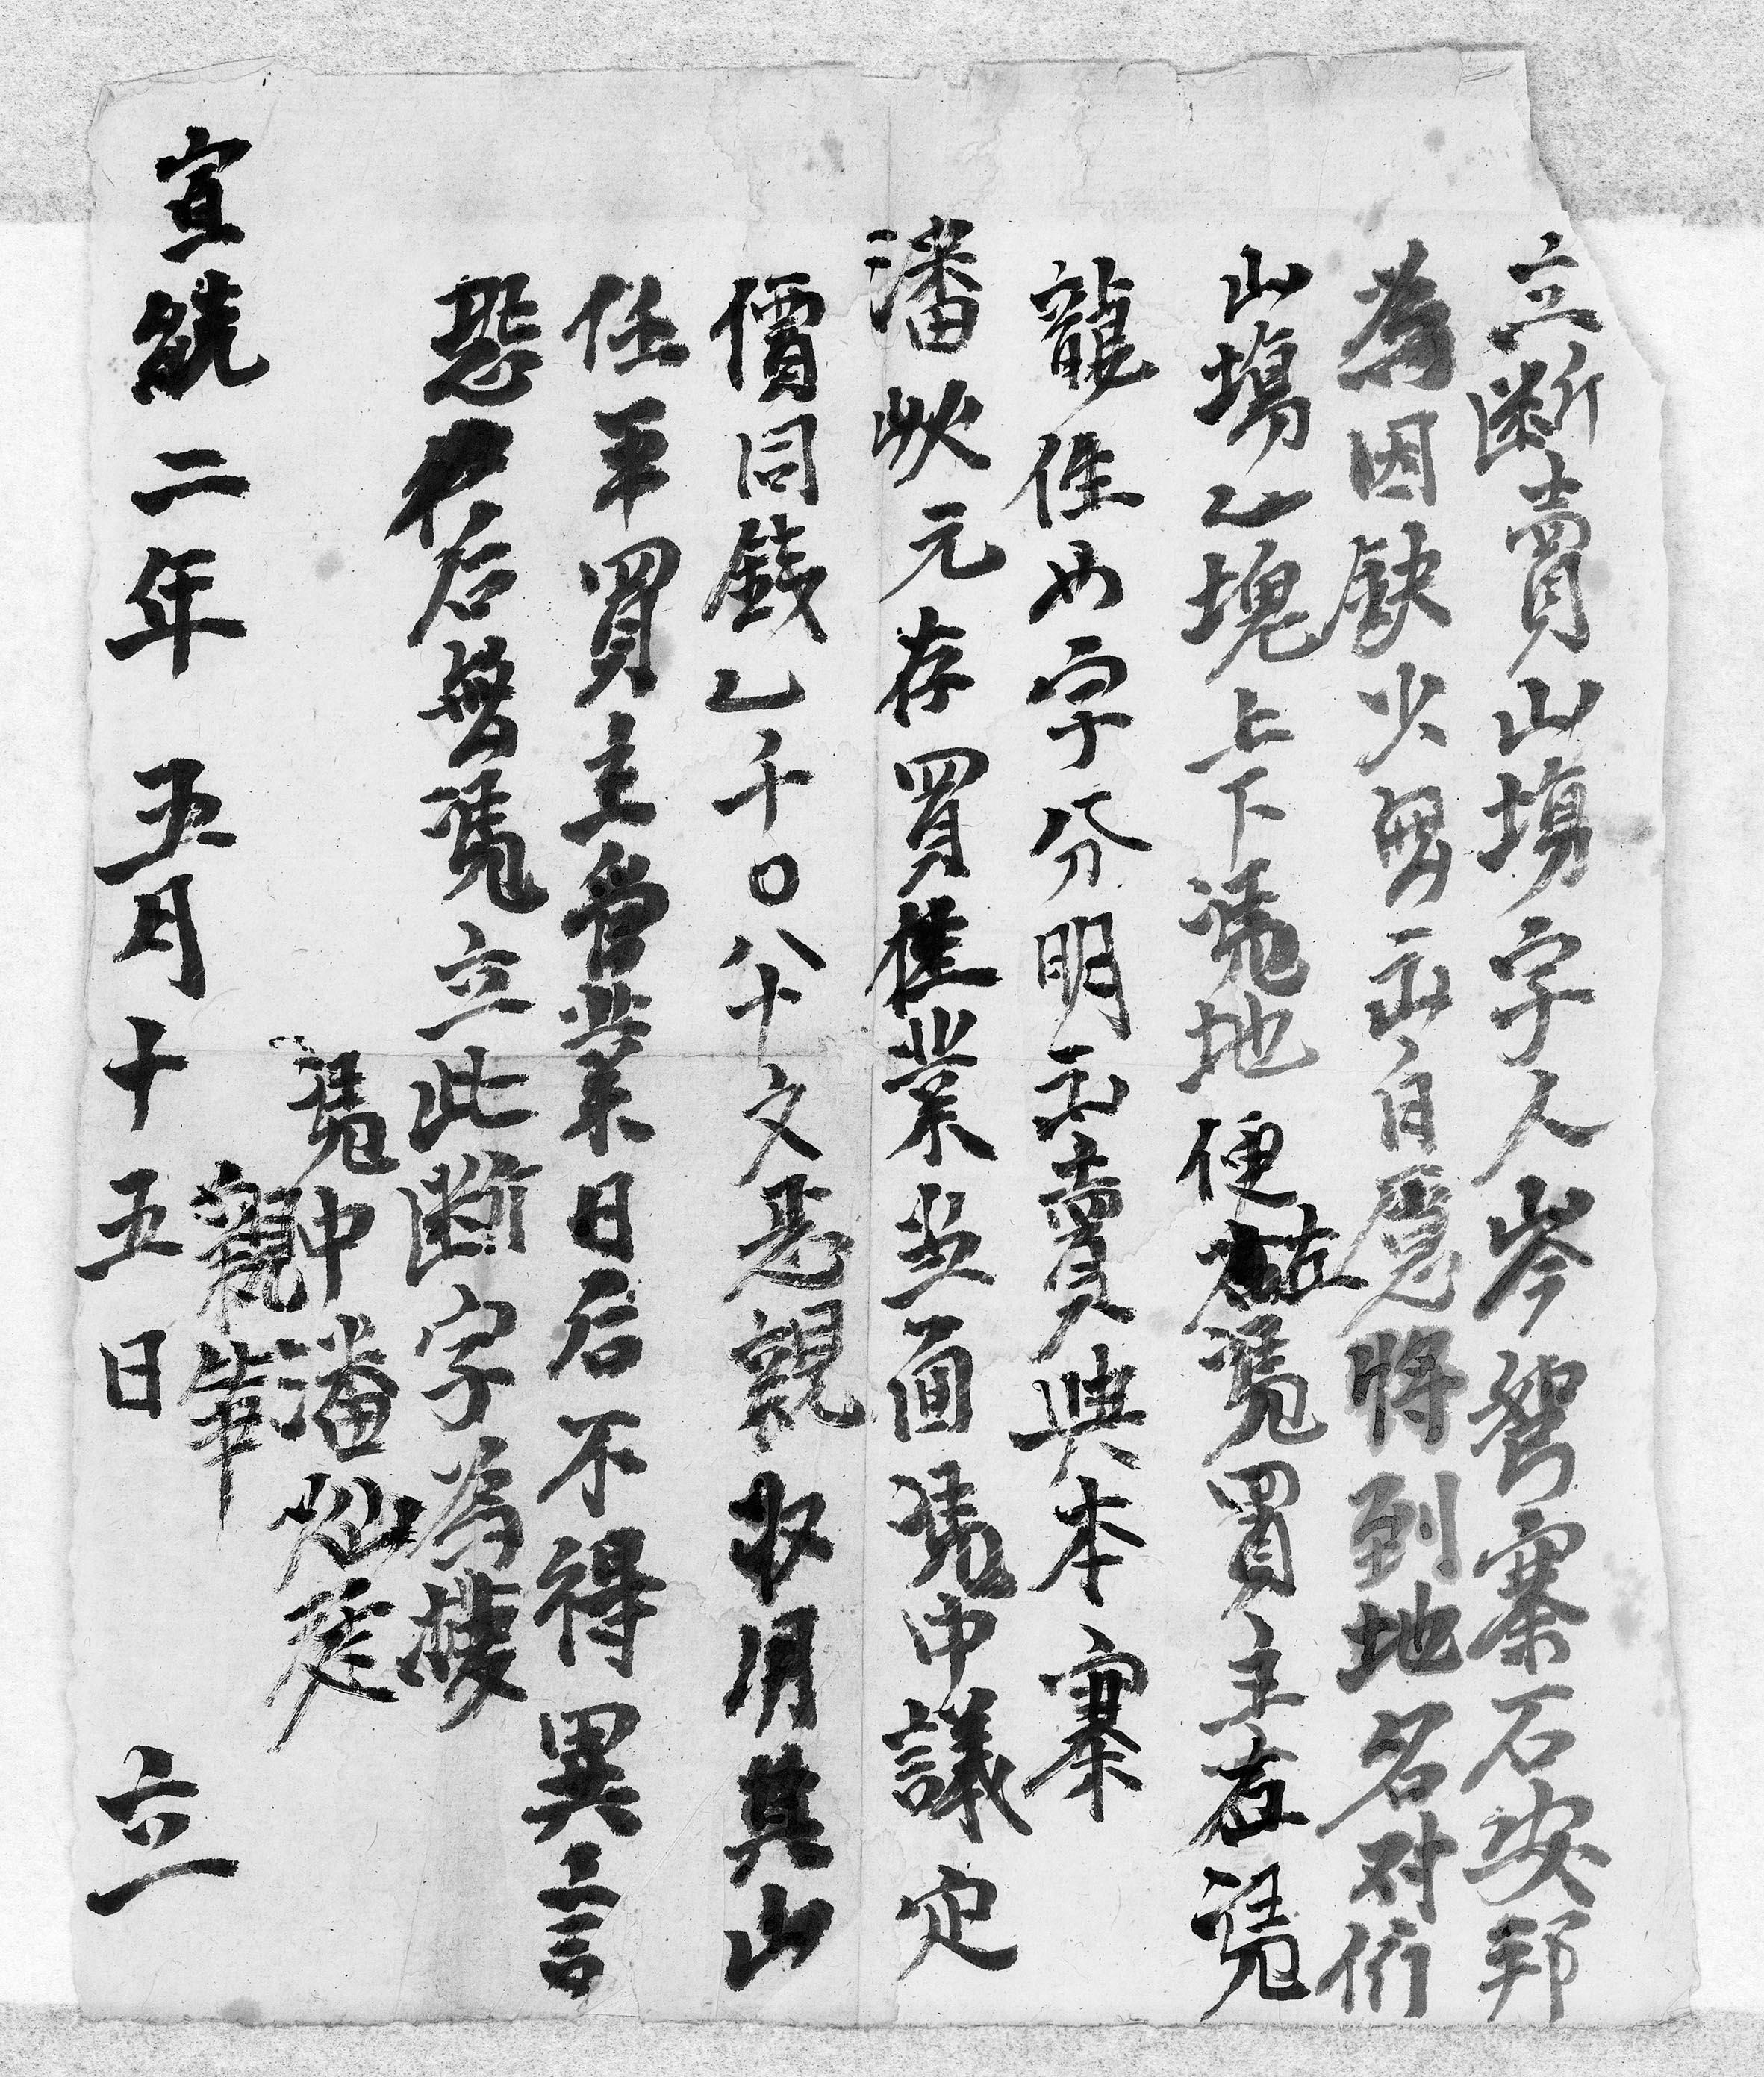 立断賣山塲字人岑響寨石安邦
為因缺少用出自愿將到地名对衍
山塲乙塊上下憑地便左憑買主右憑
龍佳為字分明出賣與本寨
潘状元存買佳業当面憑中議定
價同錢乙千〇八十文是親收用其山
任平買主管業日后不得異言
恐後后無憑立此断字為據
憑中潘灿廷
親筆
宣統二年五月十五日 立